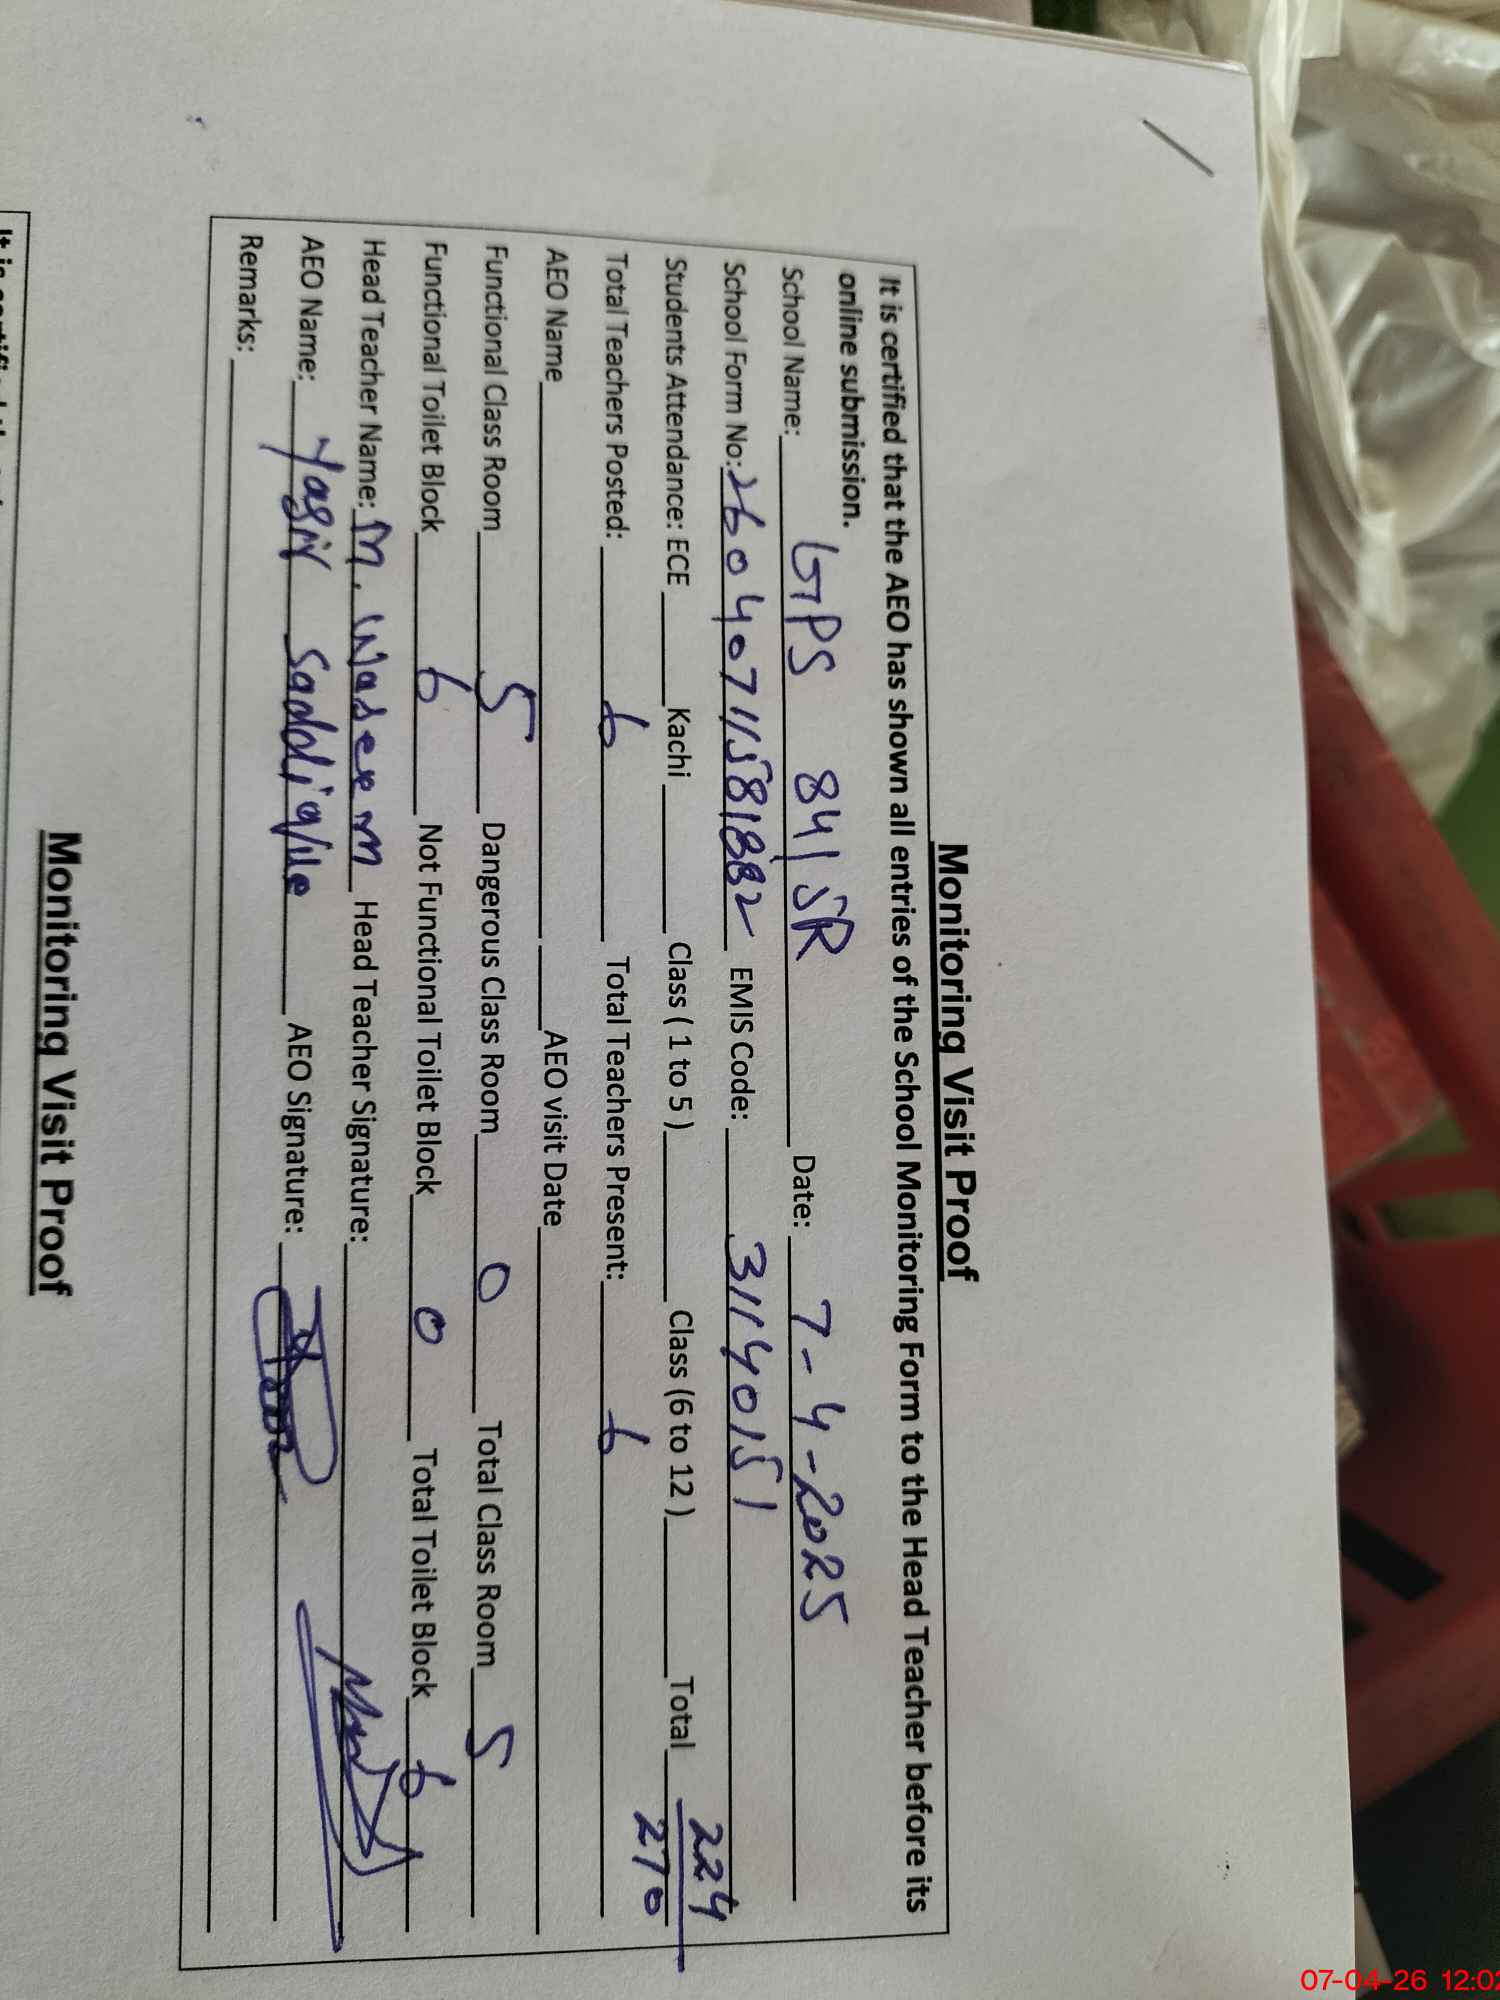 Monitoring Visit Proof
It is certified that the AEO has shown all entries of the School Monitoring Form to the Head Teacher before its
online submission.
School Name: GPS 84/5R Date: 7-4-2025
School Form No: 2604071158188 2 EMIS Code: 31140151
Students Attendance: ECE Kachi Class ( 1 to 5 ) Class (6 to 12 ) Total 224
270
Total Teachers Posted: 6 Total Teachers Present: 6
AEO Name AEO visit Date
Functional Class Room 5 Dangerous Class Room 0 Total Class Room 5
Functional Toilet Block 6 Not Functional Toilet Block 0 Total Toilet Block 6
Head Teacher Name: M. Waseem Head Teacher Signature:
AEO Name: Yasir Saddique AEO Signature:
Remarks:
Monitoring Visit Proof
07-04-26 12:02